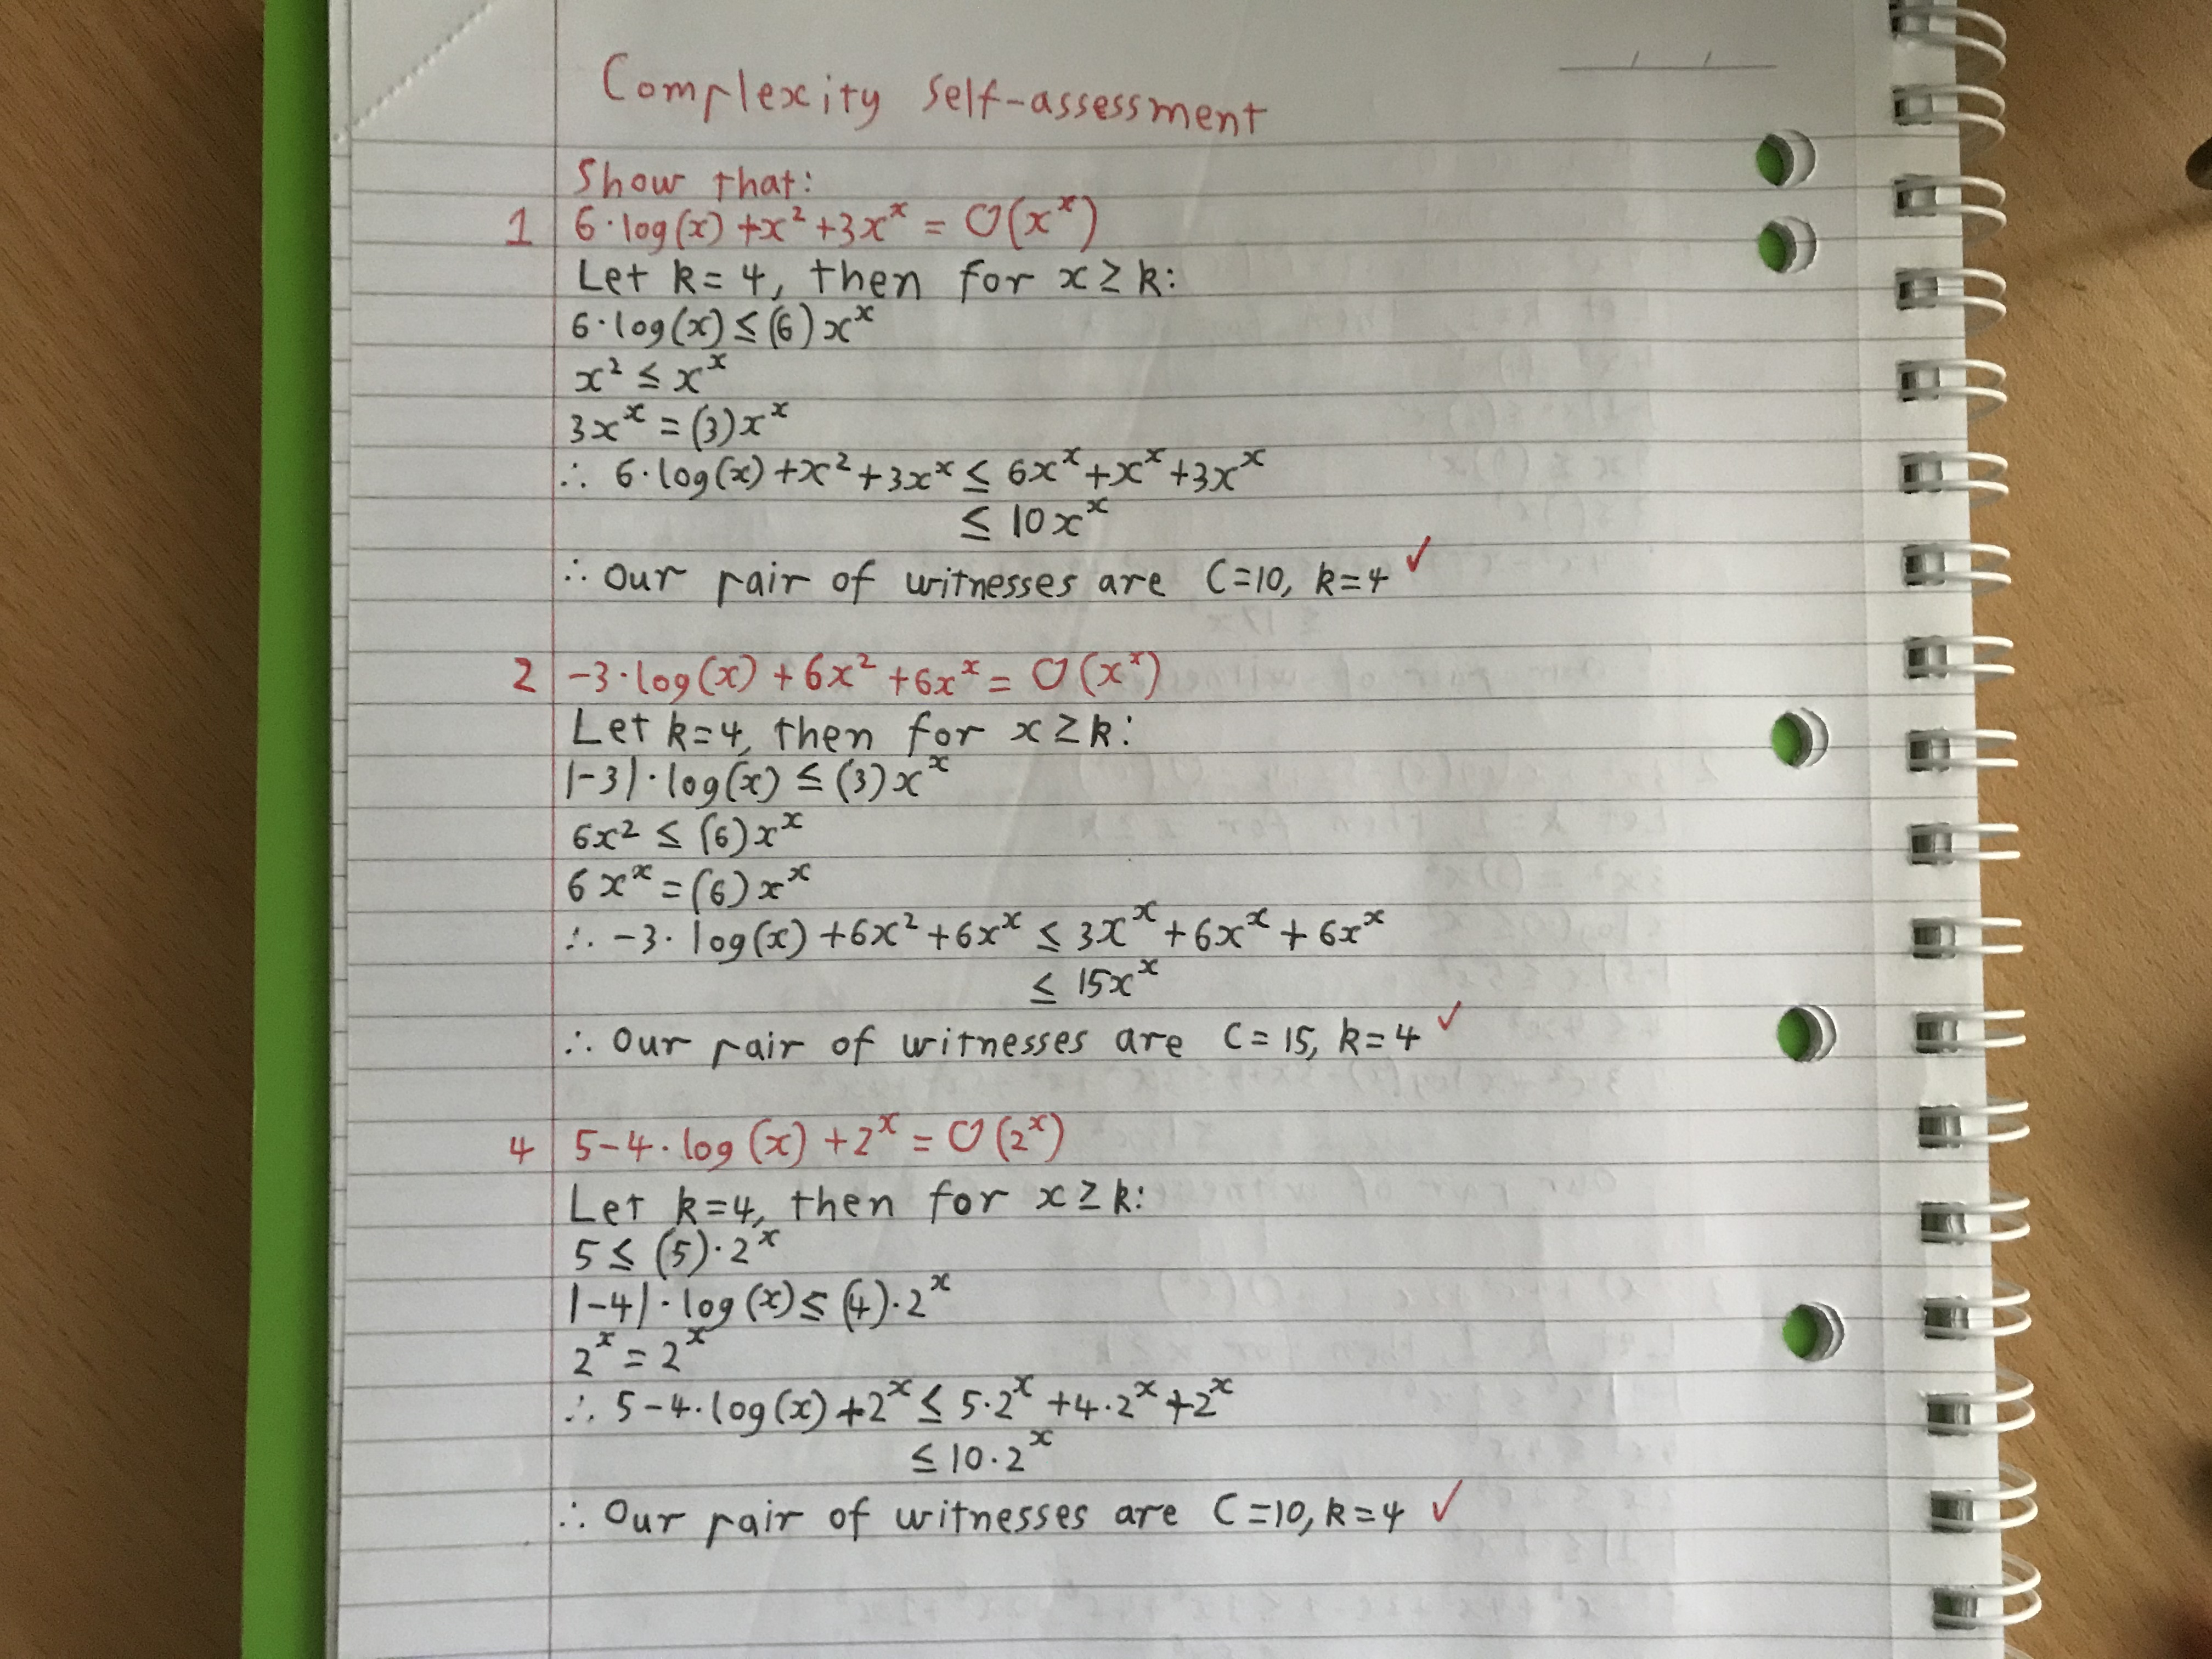 Complexity self-assessment
Show that:
1 6·log(x)+x²+3xˣ = O(xˣ)
Let k=4, then for x≥k:
6·log(x)≤(6)xˣ
x²≤xˣ
3xˣ=(3)xˣ
∴ 6·log(x)+x²+3xˣ≤6xˣ+xˣ+3xˣ
≤10xˣ
∴ Our pair of witnesses are C=10, k=4 ✓
2 -3·log(x)+6x²+6xˣ = O(xˣ)
Let k=4, then for x≥k:
|-3|·log(x)≤(3)xˣ
6x²≤(6)xˣ
6xˣ=(6)xˣ
∴ -3·log(x)+6x²+6xˣ≤3xˣ+6xˣ+6xˣ
≤15xˣ
∴ Our pair of witnesses are C=15, k=4 ✓
4 5-4·log(x)+2ˣ = O(2ˣ)
Let k=4, then for x≥k:
5≤(5)·2ˣ
|-4|·log(x)≤(4)·2ˣ
2ˣ=2ˣ
∴ 5-4·log(x)+2ˣ≤5·2ˣ+4·2ˣ+2ˣ
≤10·2ˣ
∴ Our pair of witnesses are C=10, k=4 ✓